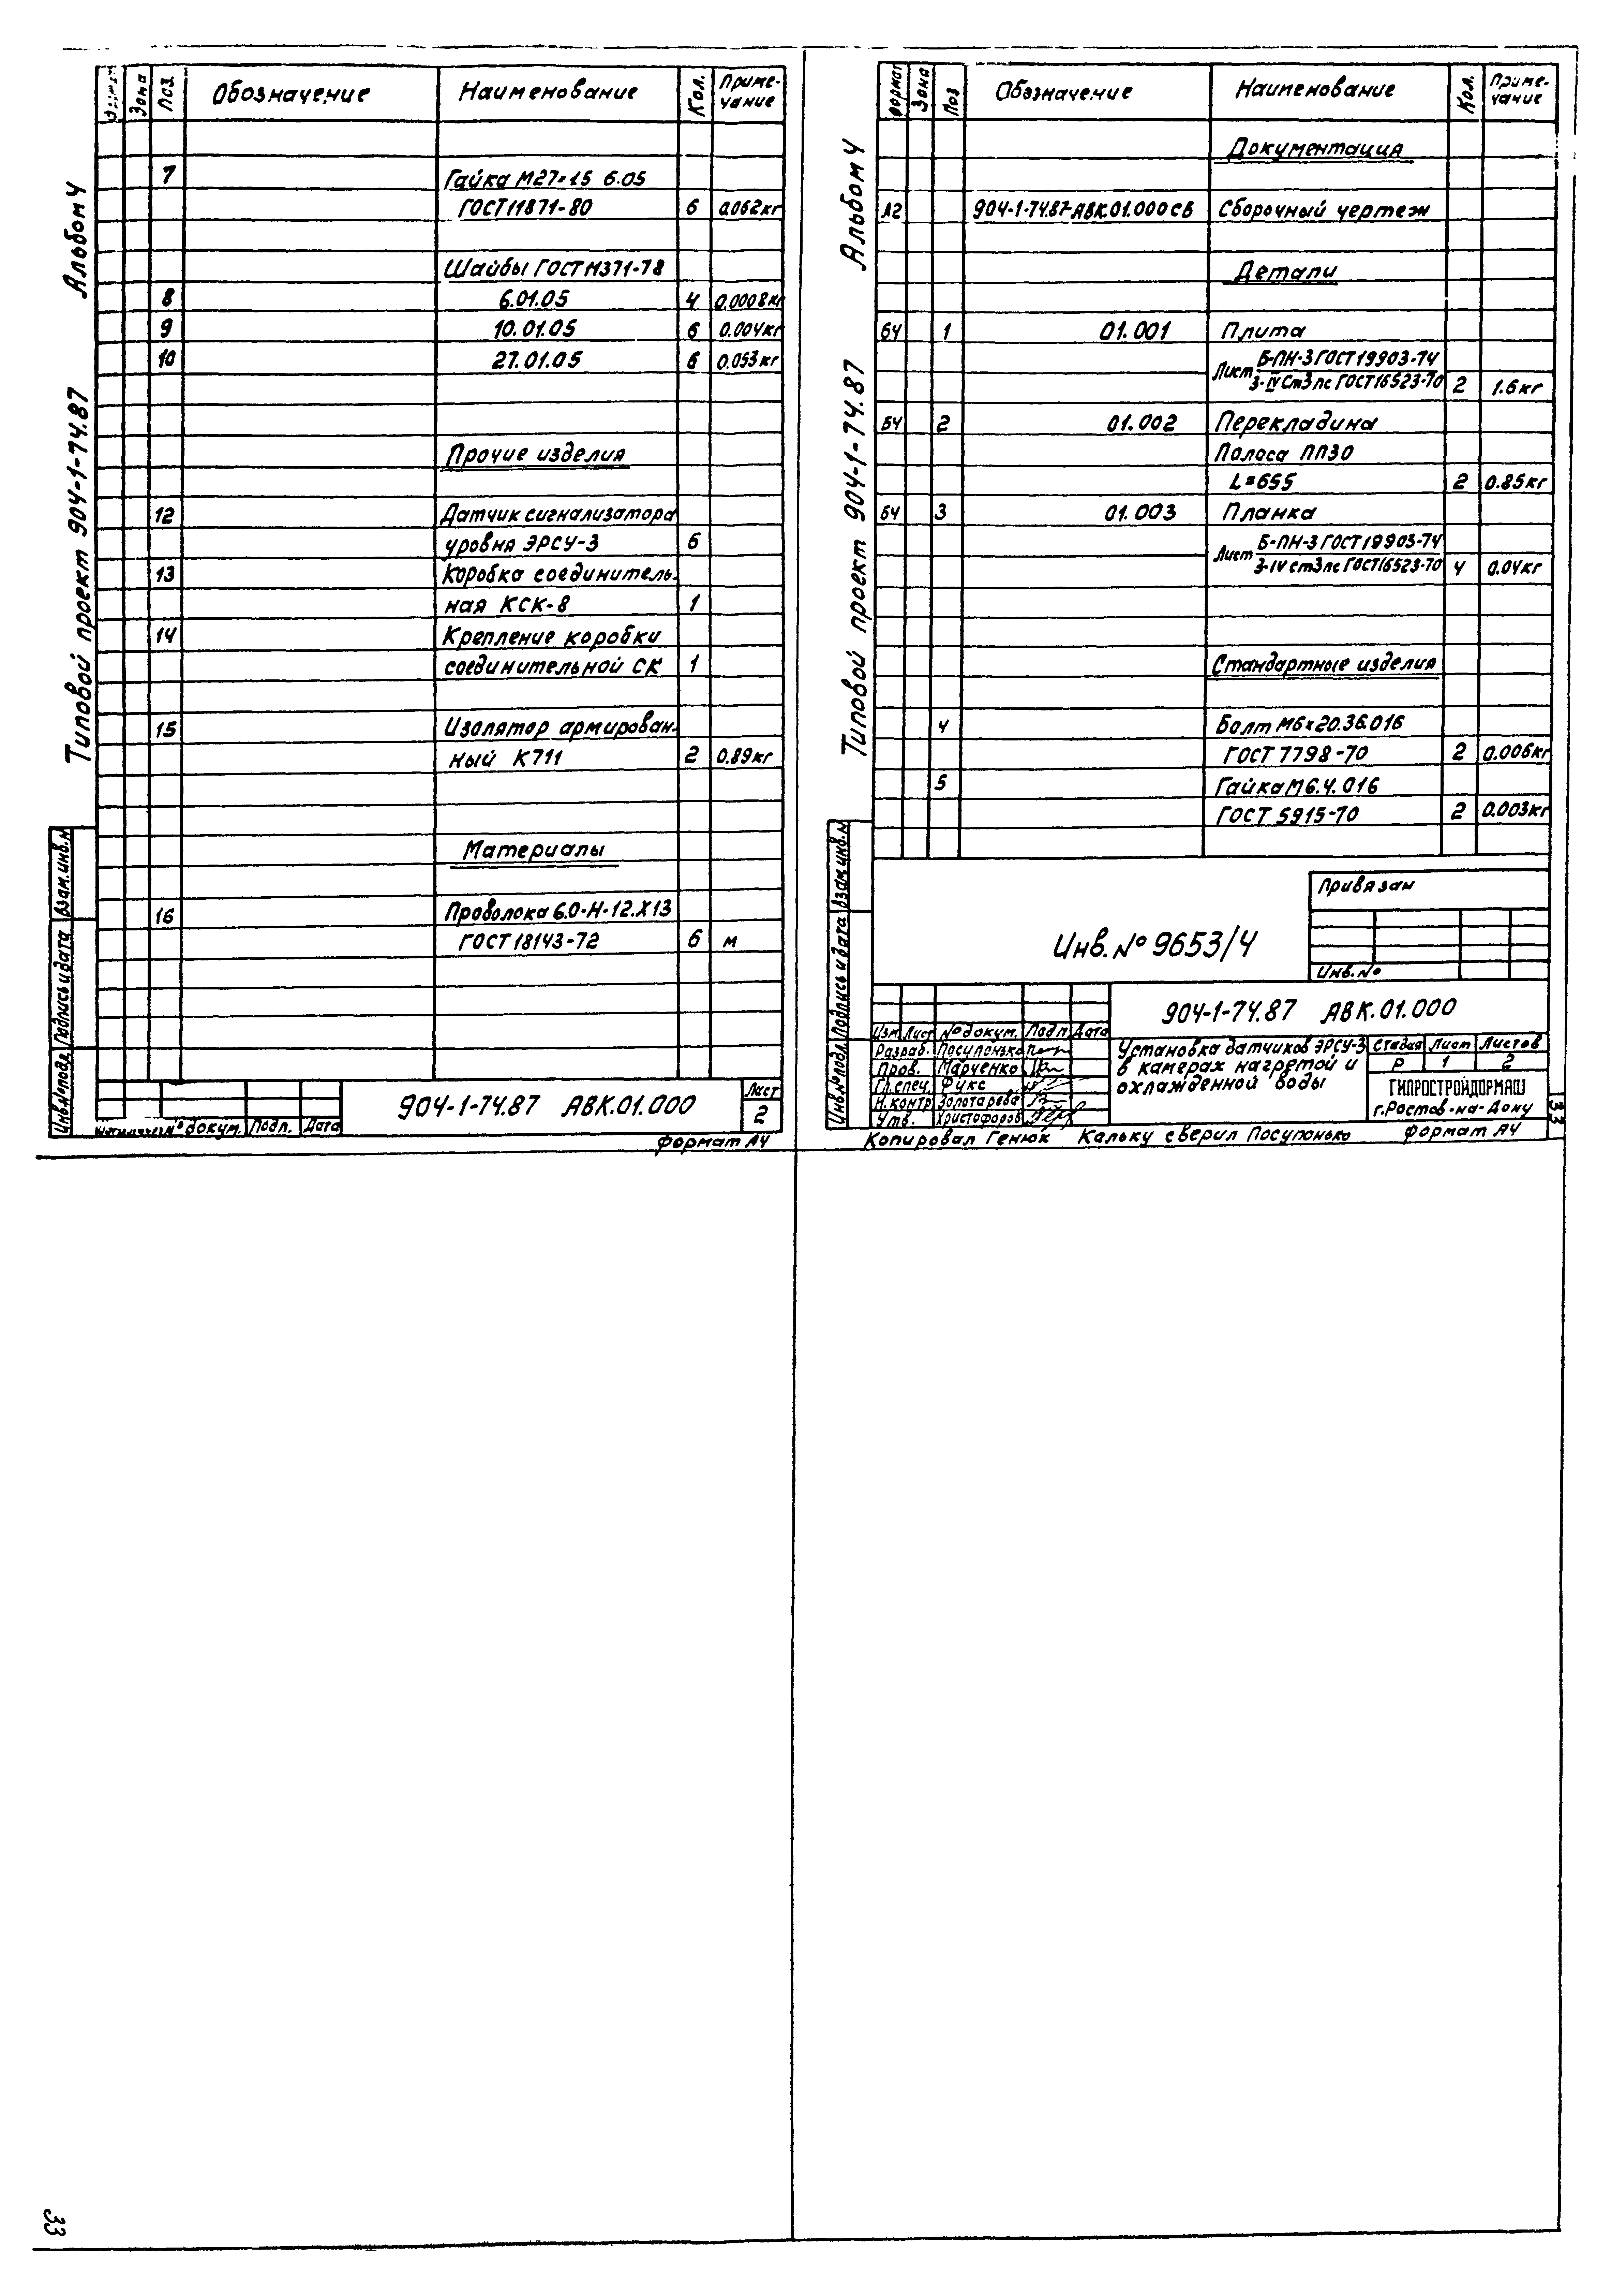 Альбом 4
Типовой проект 904-1-74.87
Зона Поз. Обозначение Наименование Кол. Приме-
чание
7 Гайка М27×1.5 6.05
ГОСТ 11871-80 6 0.062кг
Шайбы ГОСТ 11371-78
8 6.01.05 4 0.0008кг
9 10.01.05 6 0.004кг
10 27.01.05 6 0.053кг
Прочие изделия
12 Датчик сигнализатора
уровня ЭРСУ-3 6
13 Коробка соединитель-
ная КСК-8 1
14 Крепление коробки
соединительной СК 1
15 Изолятор армирован-
ный К711 2 0.89кг
Материалы
16 Проволока 6.0-Н-12.Х13
ГОСТ 18143-72 6 м
Инв.№подл. Подпись и дата Взам.инв.№
№ докум. Подп. Дата
904-1-74.87 АВК.01.000
Лист
2
Формат А4
33
Альбом 4
Типовой проект 904-1-74.87
Формат Зона Поз Обозначение Наименование Кол. Приме-
чание
Документация
А2 904-1-74.87-АВК.01.000 СБ Сборочный чертеж
Детали
БЧ 1 01.001 Плита
Лист Б-ПН-3 ГОСТ 19903-74
3-IV Ст3пс ГОСТ 16523-70 2 1.6кг
БЧ 2 01.002 Перекладина
Полоса ПП30
L=655 2 0.85кг
БЧ 3 01.003 Планка
Лист Б-ПН-3 ГОСТ 19903-74
3-IV ст3пс ГОСТ 16523-70 4 0.04кг
Стандартные изделия
4 Болт М6×20.36.016
ГОСТ 7798-70 2 0.006кг
5 Гайка М6.4.016
ГОСТ 5915-70 2 0.003кг
Инв.№подл. Подпись и дата Взам.инв.№
Привязан
Инв.№ 9653/4
Инв.№
904-1-74.87 АВК.01.000
Изм Лист № докум. Подп. Дата
Разраб. Посупонько
Пров. Марченко
Гл.спец. Фукс
Н.контр Золотарева
Утв. Христофоров
Установка датчиков ЭРСУ-3
в камерах нагретой и
охлажденной воды
Стадия Лист Листов
Р 1 2
ГИПРОСТРОЙДОРМАШ
г.Ростов-на-Дону
33
Копировал Генюк Кальку сверил Посупонько Формат А4